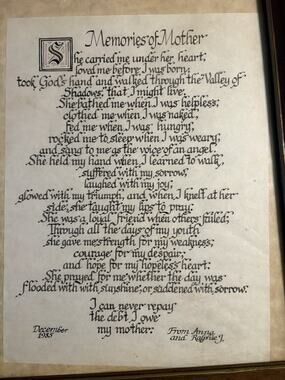 Memories of Mother
She carried me under her heart;
loved me before I was born;
took God's hand and walked through the Valley of
Shadows, that I might live.
She bathed me when I was helpless;
clothed me when I was naked,
fed me when I was hungry;
rocked me to sleep when I was weary;
and sang to me as the voice of an angel.
She held my hand when I learned to walk,
suffered with my sorrow,
laughed with my joy,
glowed with my triumph, and, when I knelt at her
side, she taught my lips to pray.
She was a loyal friend when others failed;
Through all the days of my youth
she gave me strength for my weakness;
courage for my despair,
and hope for my hopeless heart.
She prayed for me whether the day was
flooded with with sunshine, or saddened with sorrow.
I can never repay
the debt I owe
my mother.
December
1985
From Anna
and J.